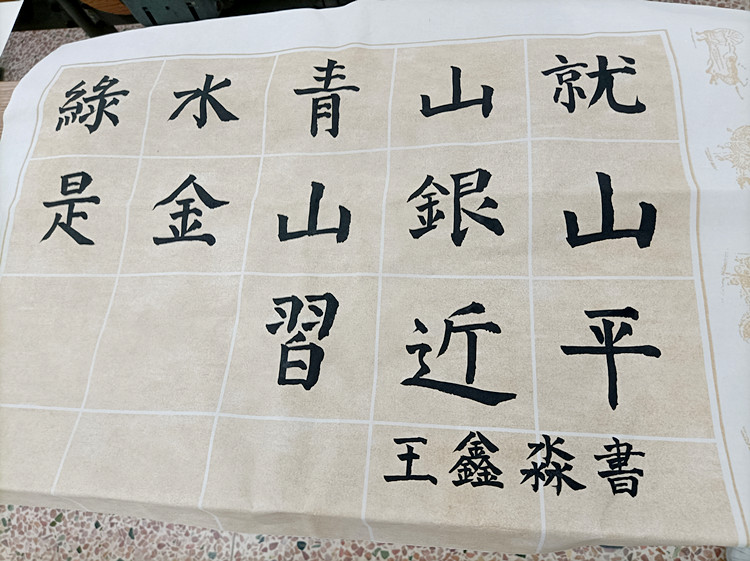 綠水青山就
是金山銀山
習近平
王鑫淼書